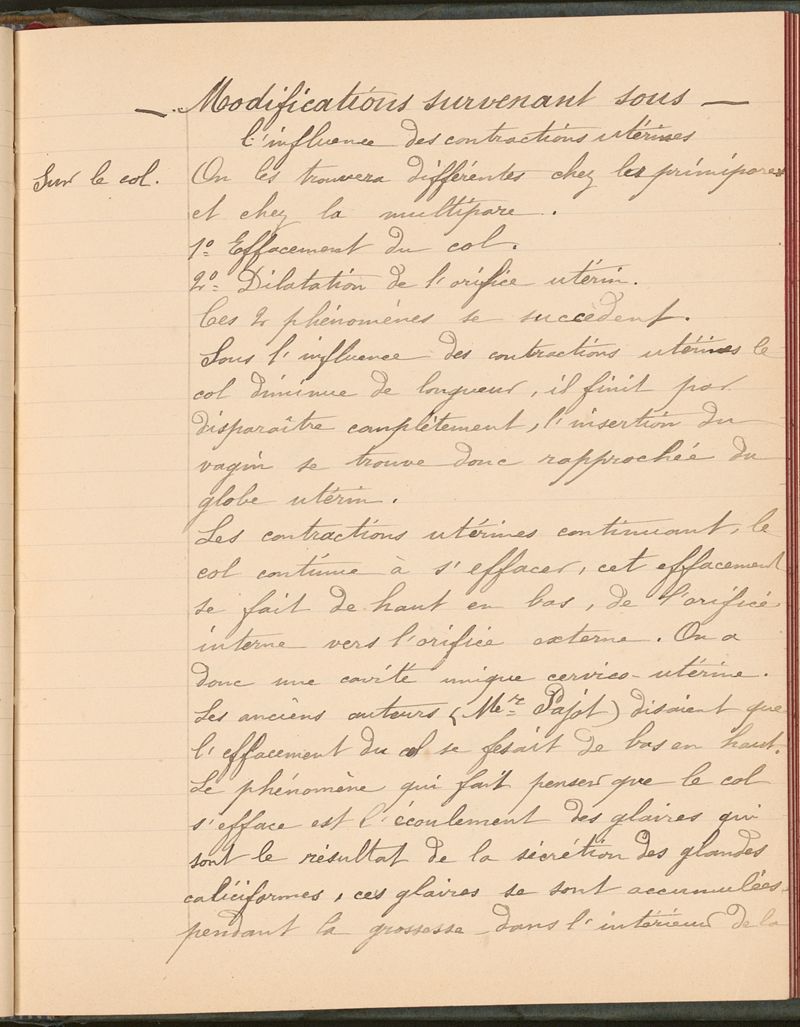 — Modifications survenant sous —
l'influence des contractions utérines
Sur le col. On les trouvera différentes chez les primipares
et chez la multipare.
1º= Effacement du col.
2º= Dilatation de l'orifice utérin.
Ces 2 phénomènes se succèdent.
Sous l'influence des contractions utérines le
col diminue de longueur, il finit par
disparaître complètement, l'insertion du
vagin se trouve donc rapprochée du
globe utérin.
Les contractions utérines continuant, le
col continue à s'effacer, cet effacement
se fait de haut en bas, de l'orifice
interne vers l'orifice externe. On a
donc une cavité unique cervico-utérine.
Les anciens auteurs (Mr= Pajot) disaient que
l'effacement du col se fesait de bas en haut.
Le phénomène qui fait penser que le col
s'efface est l'écoulement des glaires qui
sont le résultat de la sécrétion des glandes
caliciformes, ces glaires se sont accumulées
pendant la grossesse dans l'intérieur de la